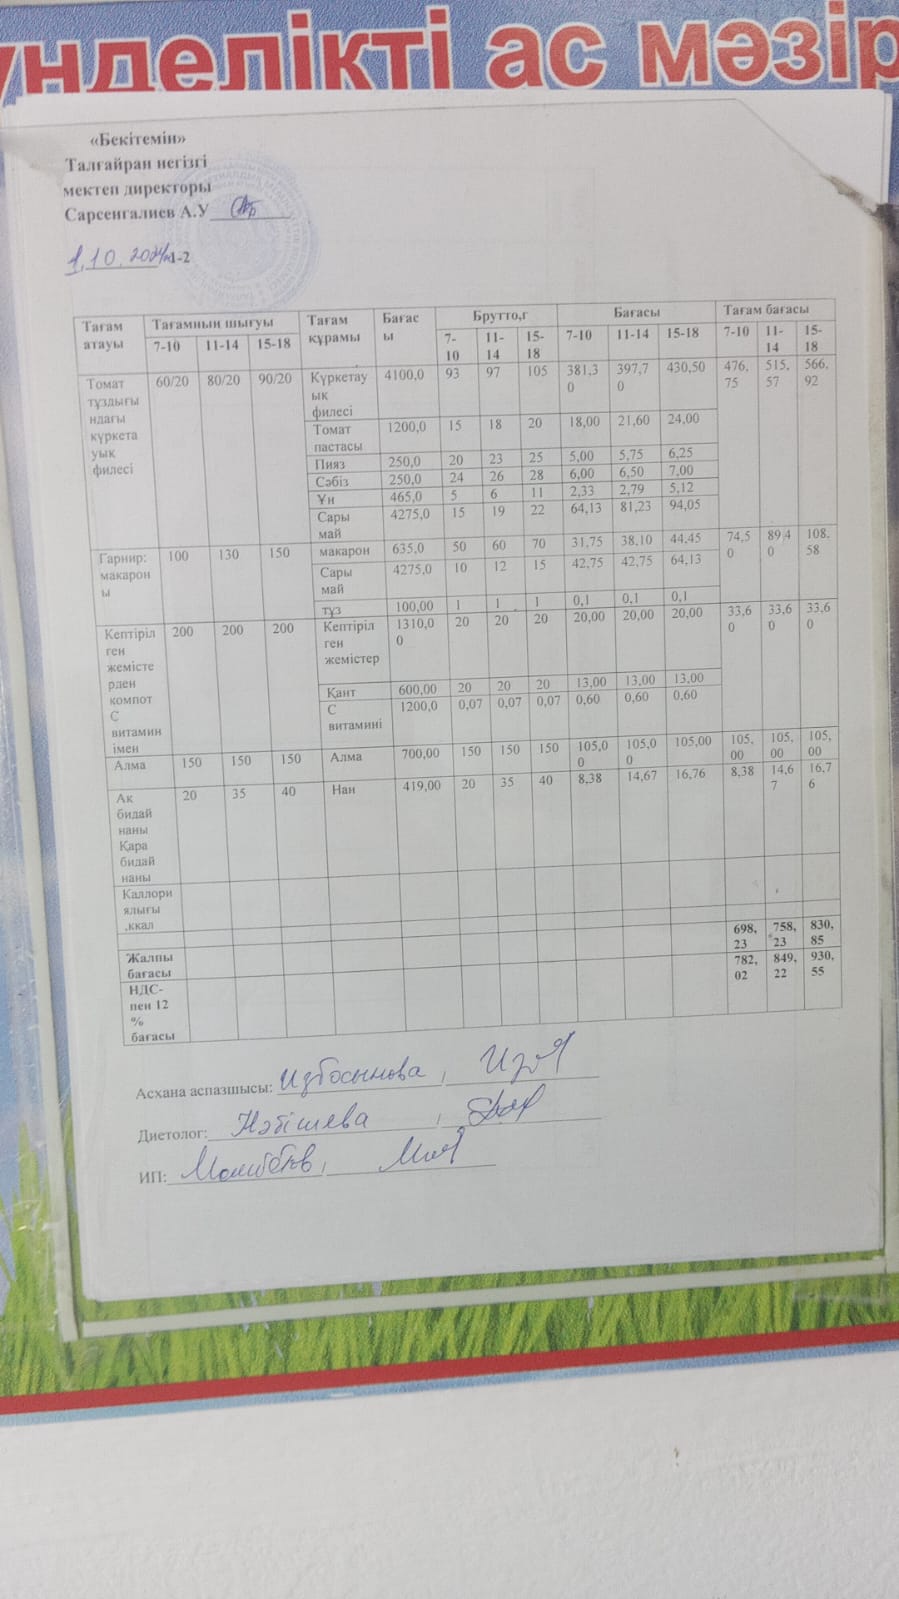 үнделікті ас мәзір
«Бекітемін»
Талғайран негізгі
мектеп директоры
Сарсенгалиев А.У
1.10.2024 1-2
Тағам атауы Тағамның шығуы Тағам құрамы Бағасы Брутто,г Бағасы Тағам бағасы
7-10 11-14 15-18 7-10 11-14 15-18 7-10 11-14 15-18 7-10 11-14 15-18
Томат тұздығындағы күркетауық филесі 60/20 80/20 90/20 Күркетауық филесі 4100,0 93 97 105 381,30 397,70 430,50 476,75 515,57 566,92
Томат пастасы 1200,0 15 18 20 18,00 21,60 24,00
Пияз 250,0 20 23 25 5,00 5,75 6,25
Сәбіз 250,0 24 26 28 6,00 6,50 7,00
Ұн 465,0 5 6 11 2,33 2,79 5,12
Сары май 4275,0 15 19 22 64,13 81,23 94,05
Гарнир: макароны 100 130 150 макарон 635,0 50 60 70 31,75 38,10 44,45 74,50 89,40 108,58
Сары май 4275,0 10 12 15 42,75 42,75 64,13
тұз 100,00 1 1 1 0,1 0,1 0,1
Кептірілген жемістерден компот С витаминімен 200 200 200 Кептірілген жемістер 1310,00 20 20 20 20,00 20,00 20,00 33,60 33,60 33,60
Қант 600,00 20 20 20 13,00 13,00 13,00
С витаминi 1200,0 0,07 0,07 0,07 0,60 0,60 0,60
Алма 150 150 150 Алма 700,00 150 150 150 105,00 105,00 105,00 105,00 105,00 105,00
Ак бидай наны Қара бидай наны 20 35 40 Нан 419,00 20 35 40 8,38 14,67 16,76 8,38 14,67 16,76
Каллориялығы ,ккал
698,23 758,23 830,85
Жалпы бағасы 782,02 849,22 930,55
НДС-пен 12 % бағасы
Асхана аспазшысы: Избосынова,
Диетолог: Нәбішева,
ИП: